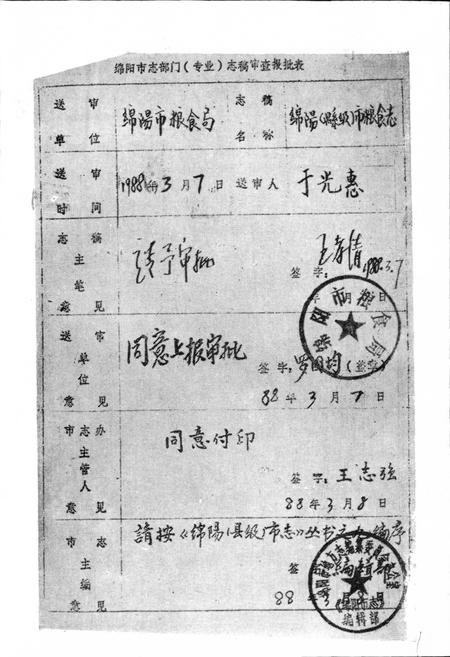 绵阳市志部门(专业)志稿审查报批表
送审单位 绵陽市粮食局 志稿名称 绵陽(縣级)市粮食志
送审时间 1988年3月7日 送审人 于光惠
志稿主笔意见 请予审批
签字: 1988.3.7
年 月 日
送审单位意见 同意上报审批
签字: 罗国均(签字)
88年3月7日
市志办主管人意见 同意付印
签字: 王志强
88年3月8日
市志主编意见 請按《绵陽(县级)市志》丛书
签
88年3月
绵阳市粮食局
《绵阳市志》
编辑部